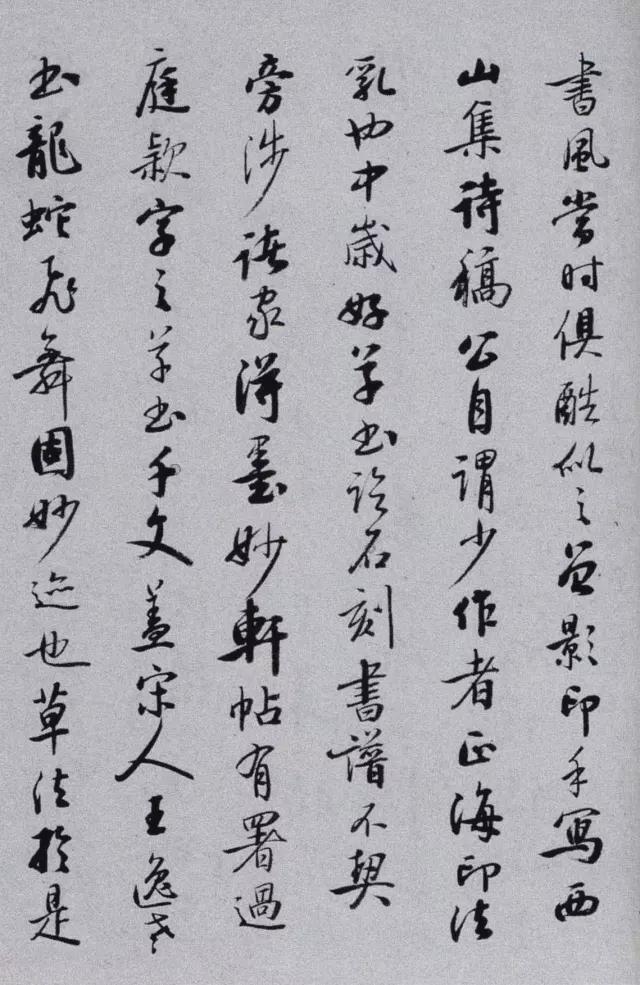 書風當时俱酷似之曾影印手寫西
山集詩稿公自謂少作者正海印法
乳也中歲好草书諗石刻書譜不契
旁涉諸家得墨妙軒帖有署過
庭款字之草书千文蓋宋人王逸老
书龍蛇飛舞固妙迹也草法於是